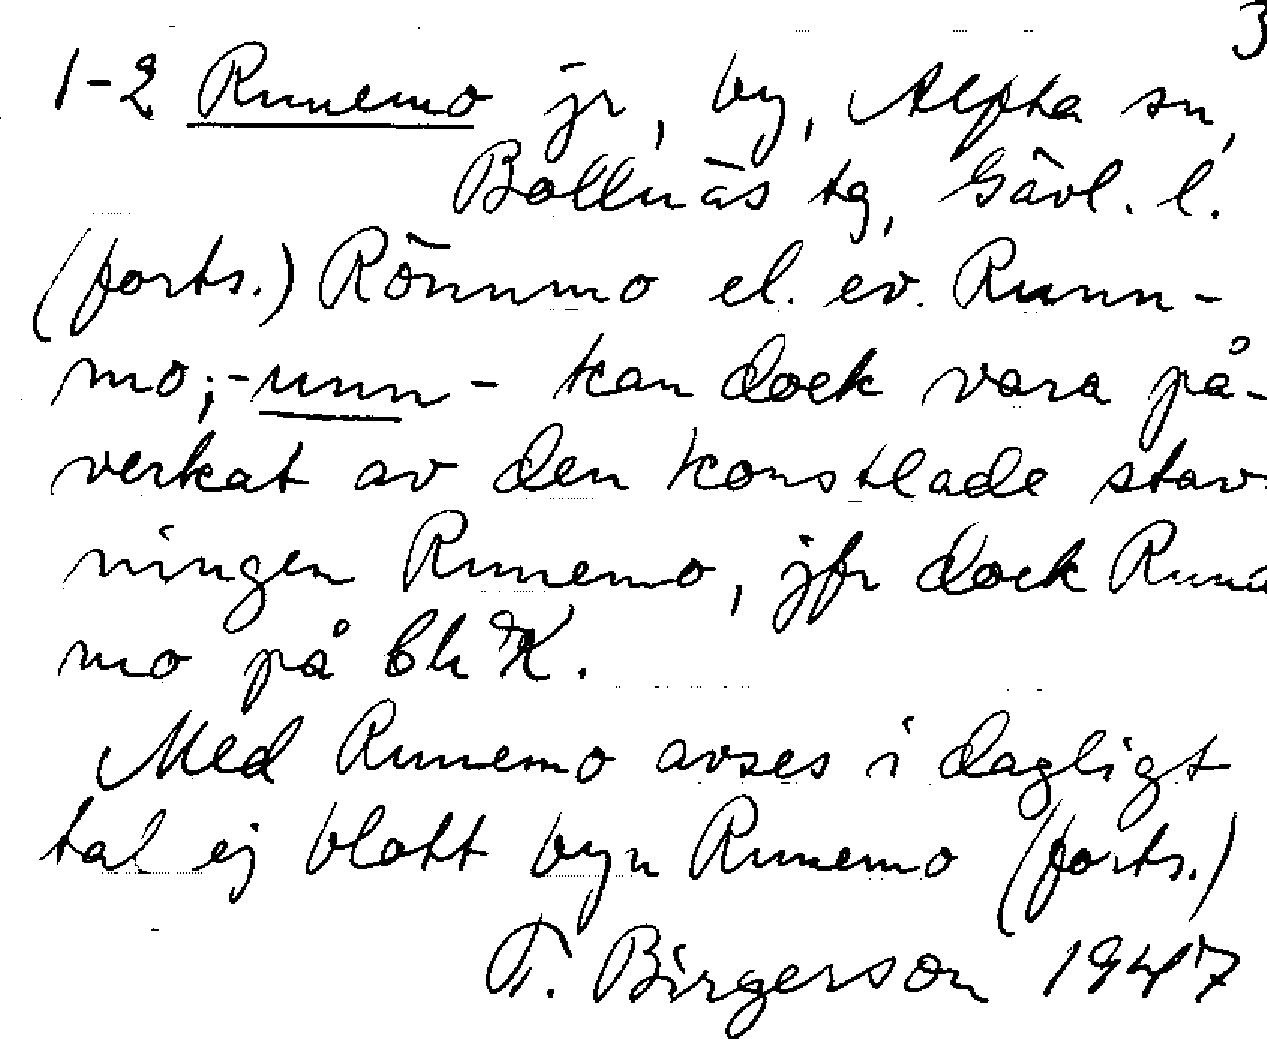 3
1-2 Runemo jr, by, Alfta sn,
Bollnäs tg, Gävl. l.
(forts.) Rönnmo el. ev. Runn-
mo; -unn- kan dock vara på-
verkat av den konstlade stav-
ningen Runemo, jfr dock Runa
mo på bl K.
Med Runemo avses i dagligt
tal ej blott byn Runemo (forts.)
T. Birgerson 1947